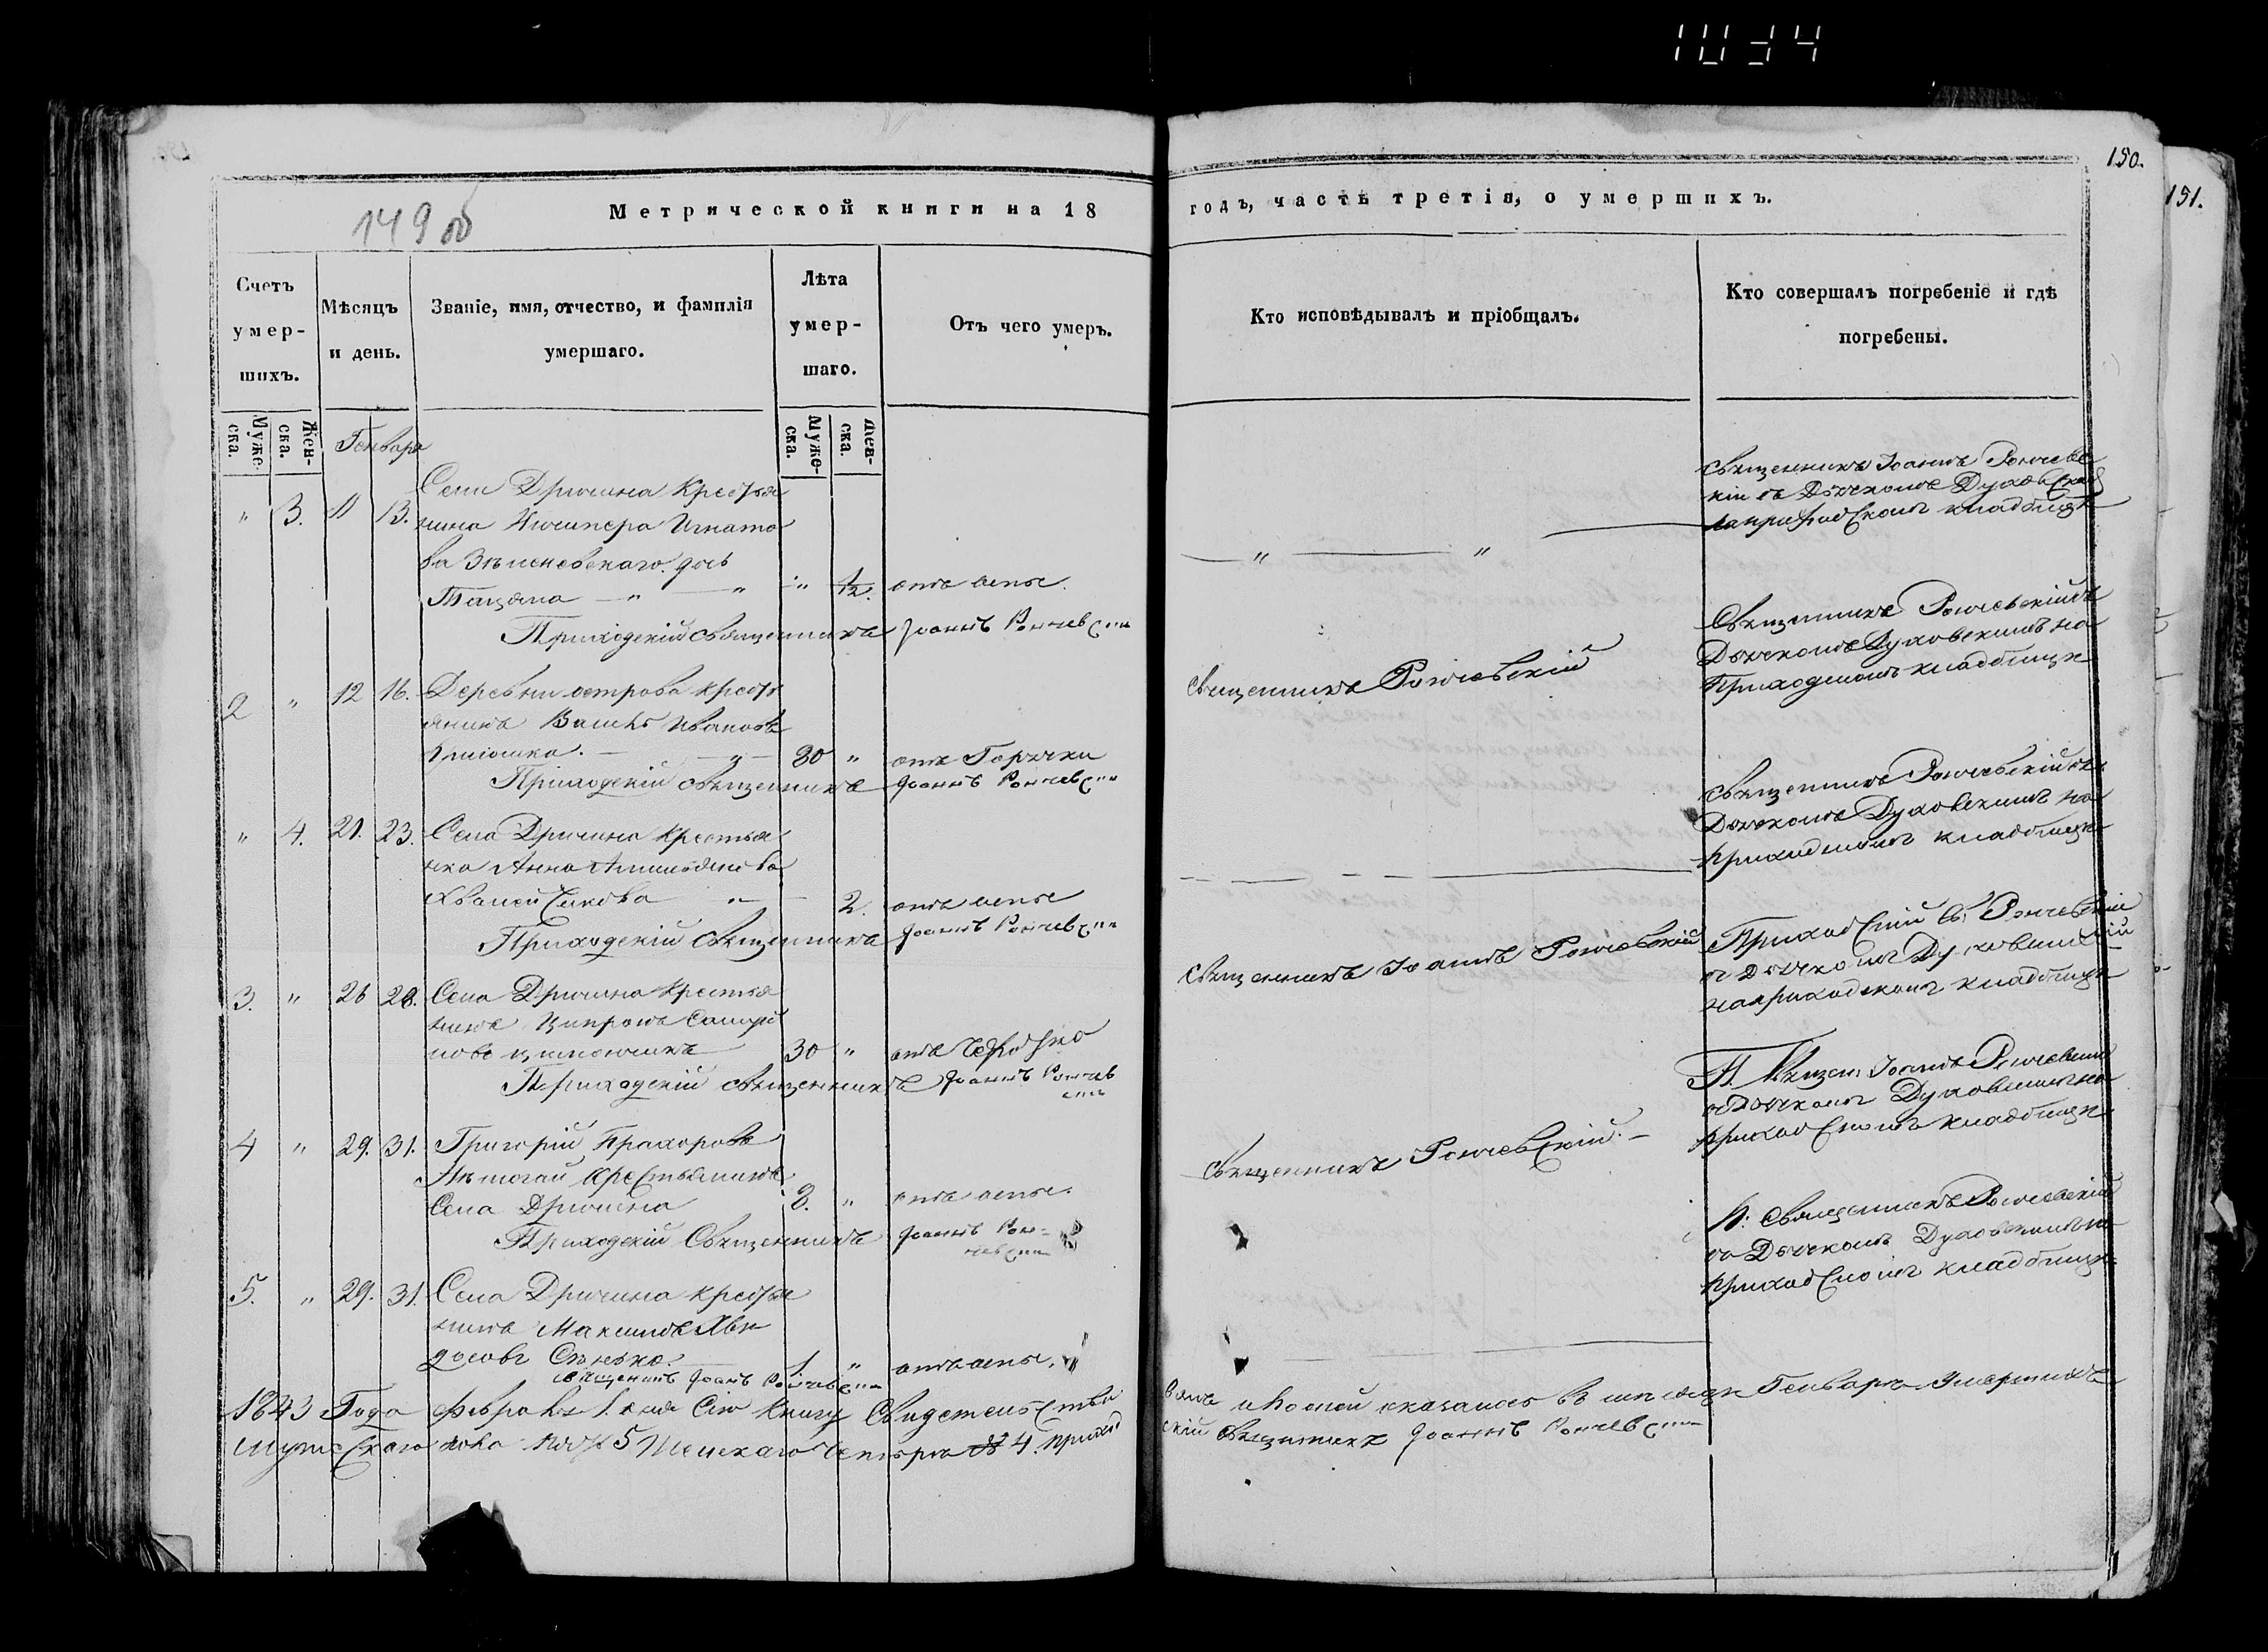 1034
150.
151.
149 об
Метрической книги на 18
годъ, часть третія, о умершихъ.
Счетъ умер-шихъ.
Мѣсяцъ и день.
Званіе, имя, отчество, и фамилія умершаго.
Лѣта умер-шаго.
Отъ чего умеръ.
Кто исповѣдывалъ и пріобщалъ.
Кто совершалъ погребеніе и гдѣ погребены.
Муже-ска.
Жен-ска.
Генваря
Муже-ска.
Жен-ска.
" 3. 11 13. Села Дричина Крестья
нина Ничипера Игнато
ва дочь
Тацяна " " " 1/2. отъ оспы.
Приходскій священникъ Іоаннъ Рончевскій
Священникъ Іоаннъ Рончевс
кій съ Дьячкомъ Духовскимъ
на приходскомъ кладбищѣ
2 " 12 16. Деревни острова крестья
янинъ Василь Ивановъ
" 80 " отъ Горячки
Приходскій священникъ Іоаннъ Рончевскій
священникъ Рончевскій
Священникъ Рончевскій съ
Дьячкомъ Духовскимъ на
Приходскомъ кладбищѣ
" 4. 21. 23. Села Дричина Крестья
нка Анна
" 2. отъ оспы
Приходскій священникъ Іоаннъ Рончевскій
священникъ Рончевскій съ
Дьячкомъ Духовскимъ на
приходскомъ кладбищѣ
3. " 26 28. Села Дричина Крестья
нинъ
30 " отъ
Приходскій священникъ Іоаннъ Рончевскій
священникъ Іоаннъ Рончевскій
Приходскій св: Рончевскій
съ Дьячкомъ Духовскимъ
на приходскомъ кладбищѣ
4 " 29. 31. Григорій Прахоровъ
Крестьянинъ
Села Дричина 2. " отъ оспы.
Приходскій Священникъ Іоаннъ Рон-
чевскій
священникъ Рончевскій. –
П. священ: Іоаннъ Рончевскій
съ Дьячкомъ Духовскимъ на
приходскомъ кладбищѣ
5. " 29. 31. Села Дричина крестья
нинъ Максимъ
Сенько. 1 " отъ оспы.
священникъ Іоаннъ Рончевскій
П: священникъ Рончевскій
съ Дьячкомъ Духовскимъ на
приходскомъ кладбищѣ
1843 Года Февраля 1. дня Сію Книгу Свидетельство
валъ и по оной оказалось въ месяце Генваре Умершихъ
мужескаго пола 5 Женскаго 4. приход
скій Священникъ Іоаннъ Рончевскій